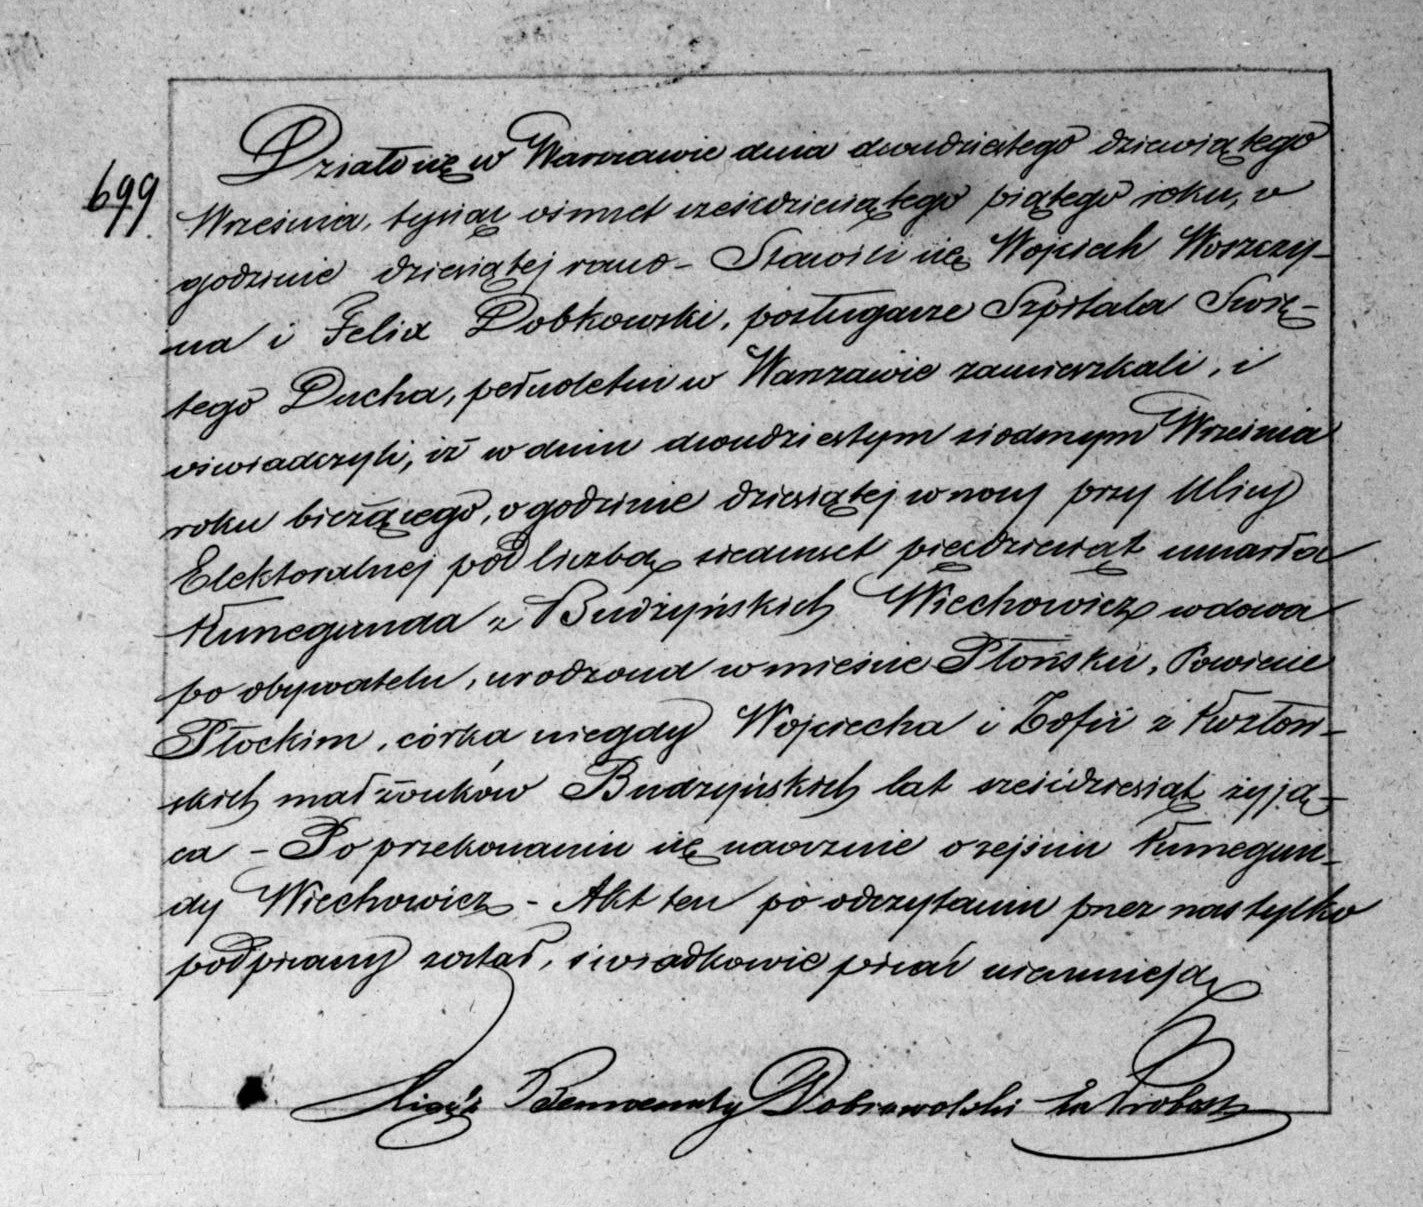 699.
Działo się w Warszawie dnia dwudziestego dziewiątego
Września, tysiąc ośmset sześćdziesiątego piątego roku, o
godzinie dziesiątej rano – Stawili się Wojciech Woszczy-
na i Felix Dobkowski, posługacze Szpitala Swię-
tego Ducha, pełnoletni w Warszawie zamieszkali, i
oświadczyli, iż w dniu dwudziestym siodmym Września
roku bieżącego, o godzinie dziesiątej w nocy przy Ulicy
Elektoralnej pod liczbą siedmset pięćdziesiąt umarła
Kunegunda z Budzyńskich Wiechowicz wdowa
po obywatelu, urodzona w mieście Płońsku, Powiecie
Płockim, córka niegdy Wojciecha i Zofii z
skich małżonków Budzyńskich lat sześćdziesiąt żyją-
ca – Po przekonaniu się naocznie o zejściu Kunegun-
dy Wiechowicz – Akt ten po odczytaniu przez nas tylko
podpisany został, świadkowie pisać nieumieją
Xiądz Benwenuty Dobrowolski za Probosz